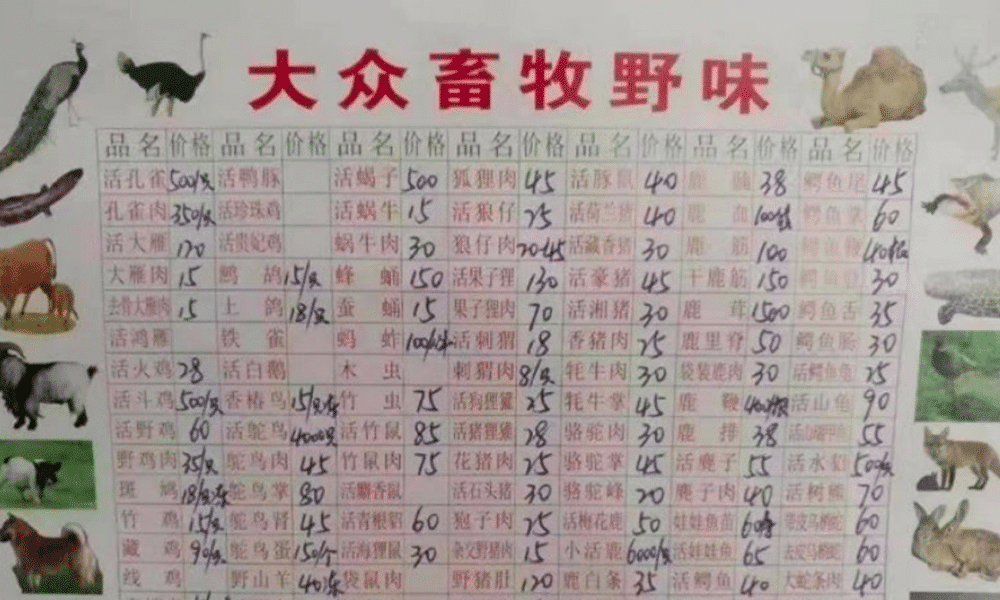 大众畜牧野味
品名 价格 品名 价格 品名 价格 品名 价格 品名 价格 品名 价格 品名 价格
活孔雀 500/只 活鸭豚 活蝎子 500 狐狸肉 45 活豚鼠 40 鹿 38 鳄鱼尾 45
孔雀肉 350/只 活珍珠鸡 活蜗牛 15 活狼仔 25 活荷兰猪 40 鹿血 鳄鱼掌 60
活大雁 120 活贵妃鸡 蜗牛肉 30 狼仔肉 20-45 活藏香猪 30 鹿筋 100 鳄鱼鞭
大雁肉 15 鹧鸪 15/只 蜂蛹 150 活果子狸 130 活豪猪 45 干鹿筋 150 鳄鱼 30
去骨大雁肉 15 土鸽 18/只 蚕蛹 15 果子狸肉 70 活湘猪 30 鹿茸 1500 鳄鱼舌 35
活鸿雁 铁雀 蚂蚱 活刺猬 18 香猪肉 25 鹿里脊 50 鳄鱼肠 30
活火鸡 28 活白鹅 木虫 刺猬肉 8/只 牦牛肉 30 袋装鹿肉 30 活鳄鱼龟 25
活斗鸡 500/只 香椿鸟 竹虫 75 活狗狸獾 25 牦牛掌 45 鹿鞭 活山龟 90
活野鸡 60 活鸵鸟 4000只 活竹鼠 85 活猪狸獾 28 骆驼肉 30 鹿排 38 55
野鸡肉 35/只 鸵鸟肉 45 竹鼠肉 75 花猪肉 25 骆驼掌 45 活麂子 55 活水 500/只
斑鸠 鸵鸟掌 80 活麝香鼠 活石头猪 30 骆驼峰 20 麂子肉 40 活树熊 70
竹鸡 15/只 鸵鸟肾 45 活青根貂 60 狍子肉 25 活梅花鹿 50 娃娃鱼苗 带皮 60
藏鸡 90/只 鸵鸟蛋 150/个 活海狸鼠 30 杂交野猪肉 15 小活鹿 6000/只 活娃娃鱼 65 去皮 60
线鸡 野山羊 袋鼠肉 野猪肚 120 鹿白条 35 活鳄鱼 40 大蛇条肉 40